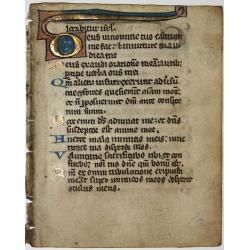 Letabitur isrl'.
Deus in nomine tuo saluum
me fac: et in uirtute tua iu
dica me
Deus exaudi orationem meam: auribus
percipe uerba oris mei
Qm alieni insurrexerunt aduersum
me et fortes quesierunt animam meam:
et non proposuerunt deum ante conspec
tum suum
Ecce enim deus adiuuat me: et dominus
susceptor est anime mee
Auerte mala inimicis meis: in ue
ritate tua disperde illos
Voluntarie sacrificabo tibi: et con
fitebor nomini tuo domine quoniam bonum est
Qm ex omni tribulatione eripuisti
me: et super inimicos meos despexit
oculus meus